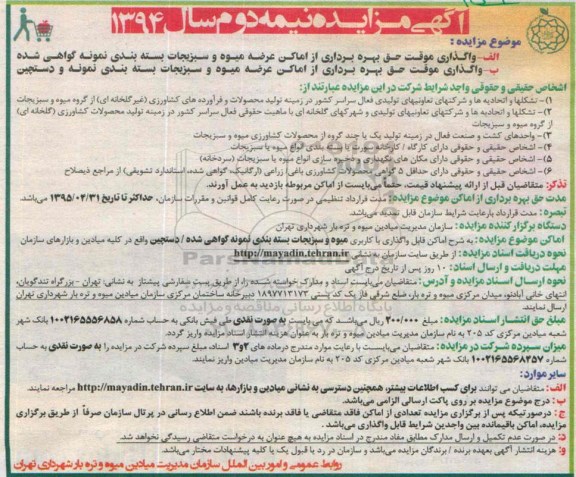 آگهی مزایده نیمه دوم سال ۱۳۹۴
موضوع مزایده :
الف- واگذاری موقت حق بهره برداری از اماکن عرضه میوه و سبزیجات بسته بندی نمونه گواهی شده
ب- واگذاری موقت حق بهره برداری از اماکن عرضه میوه و سبزیجات بسته بندی نمونه و دستچین
اشخاص حقیقی و حقوقی واجد شرایط شرکت در این مزایده عبارتند از:
۱)- تشکلها و اتحادیه ها و شرکتهای تعاونیهای تولیدی فعال سراسر کشور در زمینه تولید محصولات و فرآورده های کشاورزی (غیر گلخانه ای) از گروه میوه و سبزیجات
۲)- تشکلها و اتحادیه ها و شرکتهای تعاونیهای تولیدی و شهرکهای گلخانه ای با ماهیت حقوقی فعال سراسر کشور در زمینه تولید محصولات کشاورزی (گلخانه ای)
از گروه میوه و سبزیجات
۳)- واحدهای کشت و صنعت فعال در زمینه تولید یک یا چند گروه از محصولات کشاورزی میوه و سبزیجات
۴)- اشخاص حقیقی و حقوقی دارای کارگاه / کارخانه سورت یا بسته بندی انواع میوه یا سبزیجات
۵)- اشخاص حقیقی و حقوقی دارای مکان های نگهداری و ذخیره سازی انواع میوه یا سبزیجات (سردخانه)
۶)- اشخاص حقیقی و حقوقی دارای حداقل ۵ گواهی محصولات کشاورزی باغی/ زراعی (ارگانیک، گواهی شده، استاندارد تشویقی) از مراجع ذیصلاح
تذکر: متقاضیان قبل از ارائه پیشنهاد قیمت، حتماً می‌بایست از اماکن مربوطه بازدید به عمل آورند.
مدت حق بهره برداری از اماکن موضوع مزایده: مدت قرارداد تنظیمی در صورت رعایت کامل قوانین و مقررات سازمان، حداکثر تا تاریخ ۱۳۹۵/۰۴/۳۱ می‌باشد.
تبصره: مدت قرارداد با رعایت شرایط سازمان قابل تمدید می‌باشد.
دستگاه برگزار کننده مزایده: سازمان مدیریت میادین میوه و تره بار شهرداری تهران
اماکن موضوع مزایده : به شرح اماکن قابل واگذاری با کاربری میوه و سبزیجات بسته بندی نمونه گواهی شده / دستچین واقع در کلیه میادین و بازارهای سازمان
نحوه دریافت اسناد مزایده: از طریق سایت سازمان http://mayadin.tehran.ir
مهلت دریافت و ارسال اسناد: ۱۰ روز پس از تاریخ درج آگهی
نحوه ارسال اسناد مزایده و آدرس: متقاضیان می‌بایست اسناد و مدارک خواسته شده را، از طریق پست سفارشی پیشتاز به نشانی: تهران - بزرگراه تندگویان،
انتهای خانی آبادنو، میدان مرکزی میوه و تره بار، ضلع شرقی فاز یک کد پستی ۱۸۹۷۷۱۳۱۷۳ دبیرخانه ساختمان مرکزی سازمان میادین میوه و تره بار شهرداری تهران
ارسال نمایند.
مبلغ حق انتشار اسناد مزایده: مبلغ ۲۰۰/۰۰۰ ریال می‌باشد که می بایست به صورت نقدی طی فیش بانکی به حساب شماره ۱۰۰۲۱۶۵۵۵۶۸۵۸ بانک شهر
شعبه میادین مرکزی کد ۲۰۵ به نام سازمان مدیریت میادین میوه و تره بار به عنوان هزینه انتشار اسناد مزایده واریز گردد.
میزان سپرده شرکت در مزایده: متقاضیان می‌بایست با رعایت موارد مندرج درماده های ۲و۳ اسناد، مبلغ سپرده شرکت در مزایده را به صورت نقدی به حساب
شماره ۱۰۰۲۱۶۵۵۶۸۴۵۷ بانک شهر شعبه میادین مرکزی کد ۲۰۵ به نام سازمان مدیریت میادین واریز نمایند.
سایر موارد:
الف: متقاضیان می توانند برای کسب اطلاعات بیشتر، همچنین دسترسی به نشانی میادین و بازارها، به سایت http://mayadin.tehran.ir مراجعه نمایند.
ب: درج موضوع مزایده بر روی پاکت ارسالی الزامی می‌باشد.
ج: درصورتیکه پس از برگزاری مزایده تعدادی از اماکن فاقد متقاضی یا فاقد برنده باشند ضمن اطلاع رسانی در پرتال سازمان صرفاً از طریق برگزاری
مزایده، اماکن باقیمانده بین واجدین شرایط قابل واگذاری می‌باشد.
د: در صورت عدم تکمیل و ارسال مدارک مطابق مفاد مندرج در اسناد مزایده به هیچ عنوان به درخواست متقاضی رسیدگی نخواهد شد.
هـ: هزینه انتشار آگهی بعهده برنده / برندگان مزایده می باشد و سازمان در رد یا قبول یک یا کلیه پیشنهادات مختار می‌باشد.
روابط عمومی و امور بین الملل سازمان مدیریت میادین میوه و تره بار شهرداری تهران